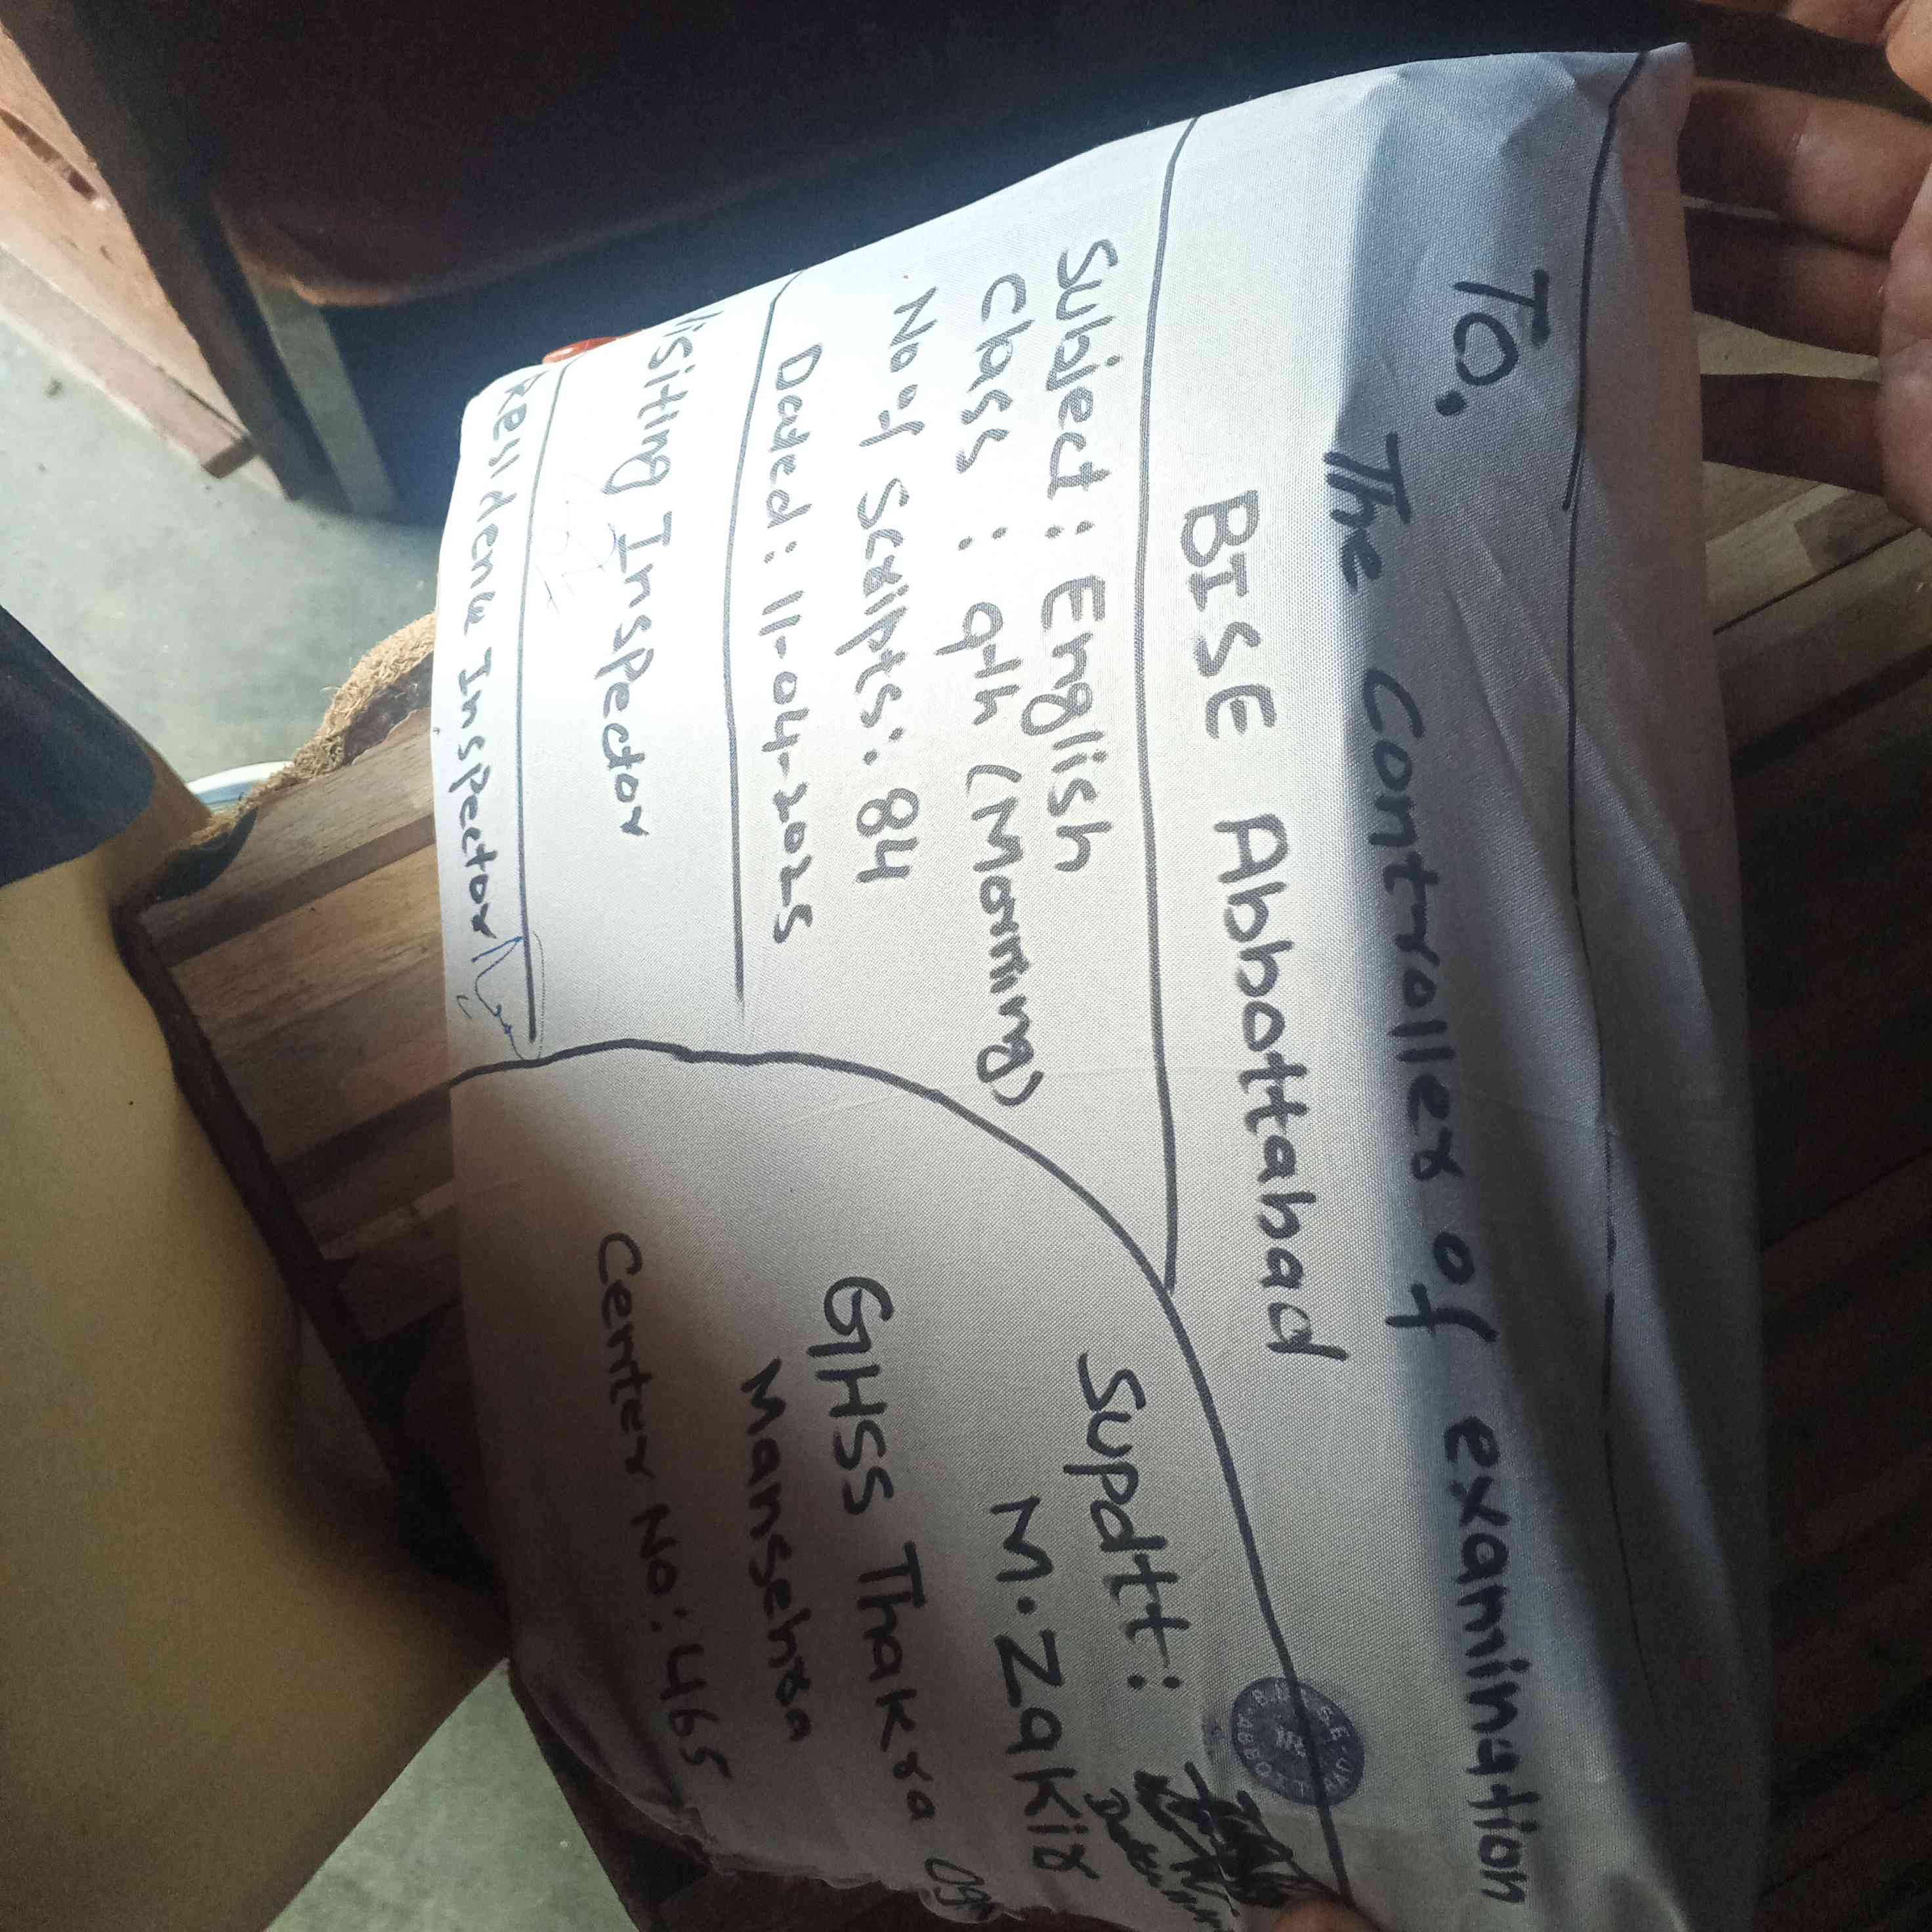 To,
The Controller of examination
BISE Abbottabad
Subject: English
Class : 9th (Morning)
No of Scripts: 84
Dated: 11-04-2025
Visiting Inspector
Resildene Inspector
Supdtt:
M. Zakir
GHSS Thakra Oghi
Mansehra
Center No: 465